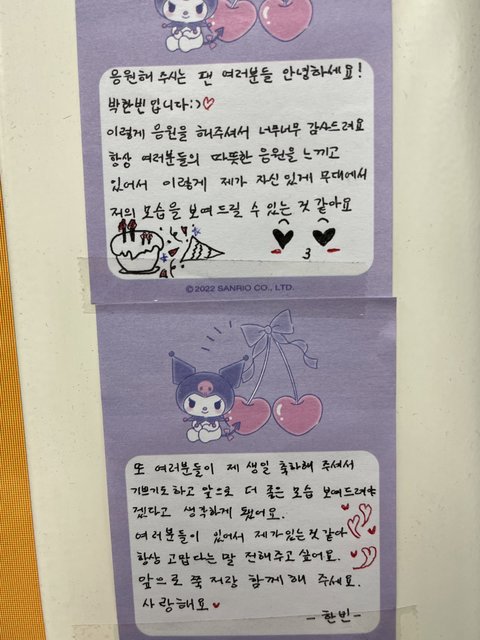 응원해 주시는 팬 여러분들 안녕하세요!
박한빈입니다:)♡
이렇게 응원을 해주셔서 너무너무 감사드려요
항상 여러분들의 따뜻한 응원을 느끼고
있어서 이렇게 제가 자신있게 무대에서
저의 모습을 보여드릴 수 있는 것 같아요
©2022 SANRIO CO., LTD.
또 여러분들이 제 생일 축하해 주셔서
기쁘기도하고 앞으로 더 좋은 모습 보여드려야
겠다고 생각하게 됐어요.
여러분들이 있어서 제가있는것 같아
항상 고맙다는 말 전해주고 싶어요.
앞으로 쭉 저랑 함께 해 주세요.
사랑해요♥
-한빈-